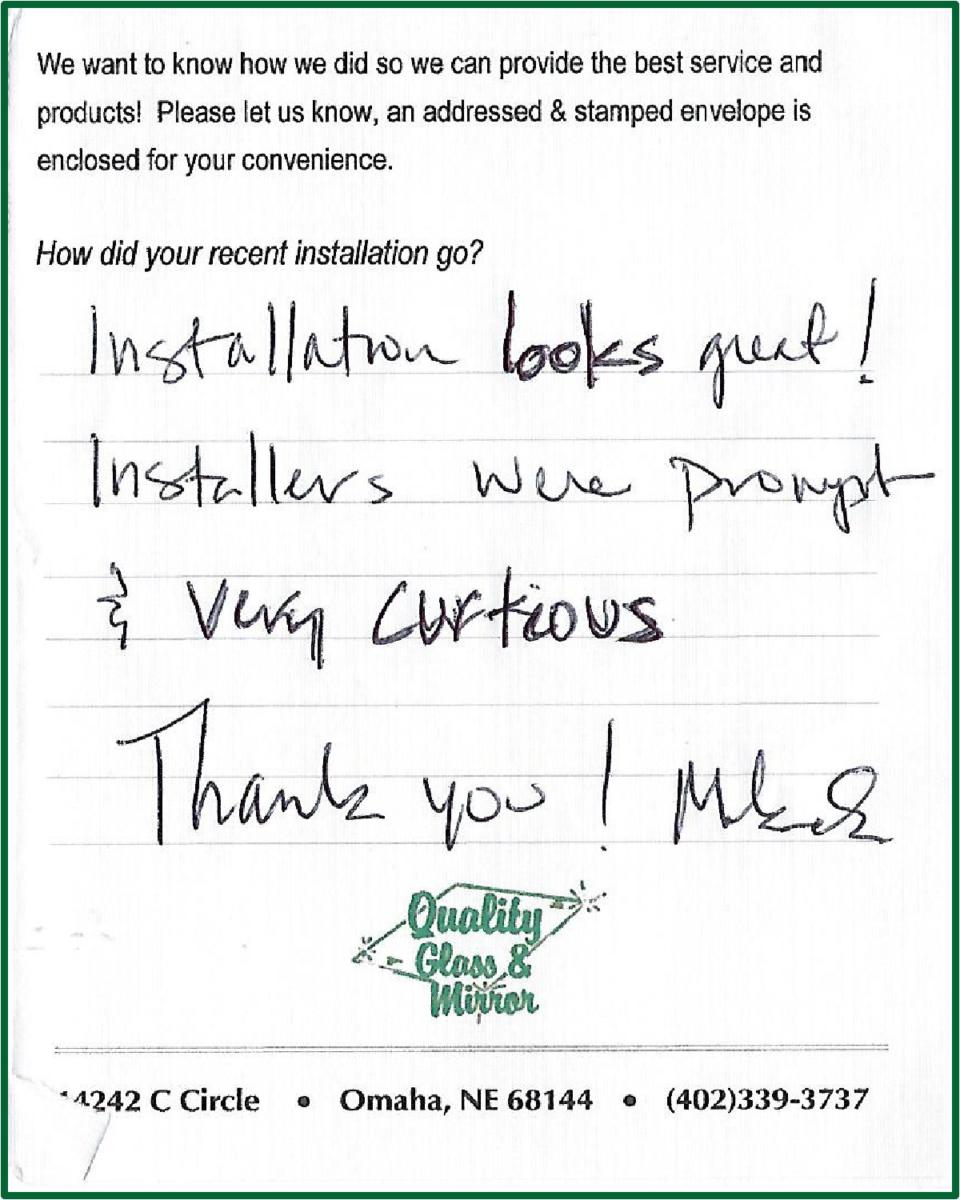 We want to know how we did so we can provide the best service and
products! Please let us know, an addressed & stamped envelope is
enclosed for your convenience.
How did your recent installation go?
Installation looks great!
Installers were prompt
& very curtious
Thank you!
Quality
Glass &
Mirror
14242 C Circle • Omaha, NE 68144 • (402)339-3737